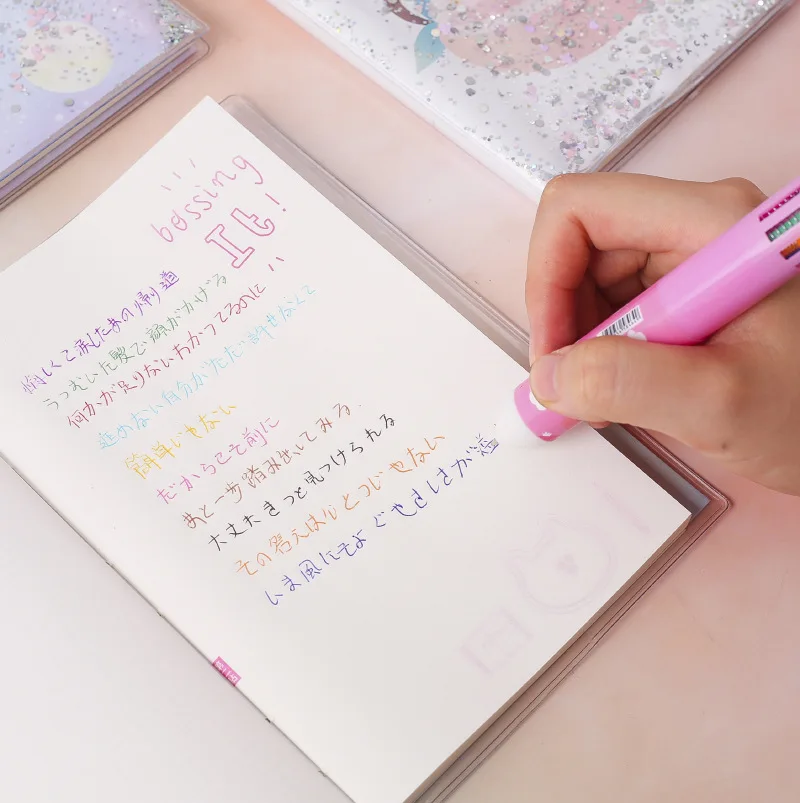 bossing
It!
悔しくて涙したあの帰り道
うつむいた髪で顔がかげる
何かが足りないわかってるのに
進めない自分がただ許せなくて
簡単じゃない
だからこそ前に
あと一歩踏み出してみる
大丈夫きっと見つけられる
その答えは1つじゃない
いま風にそよぐやさしさが溢